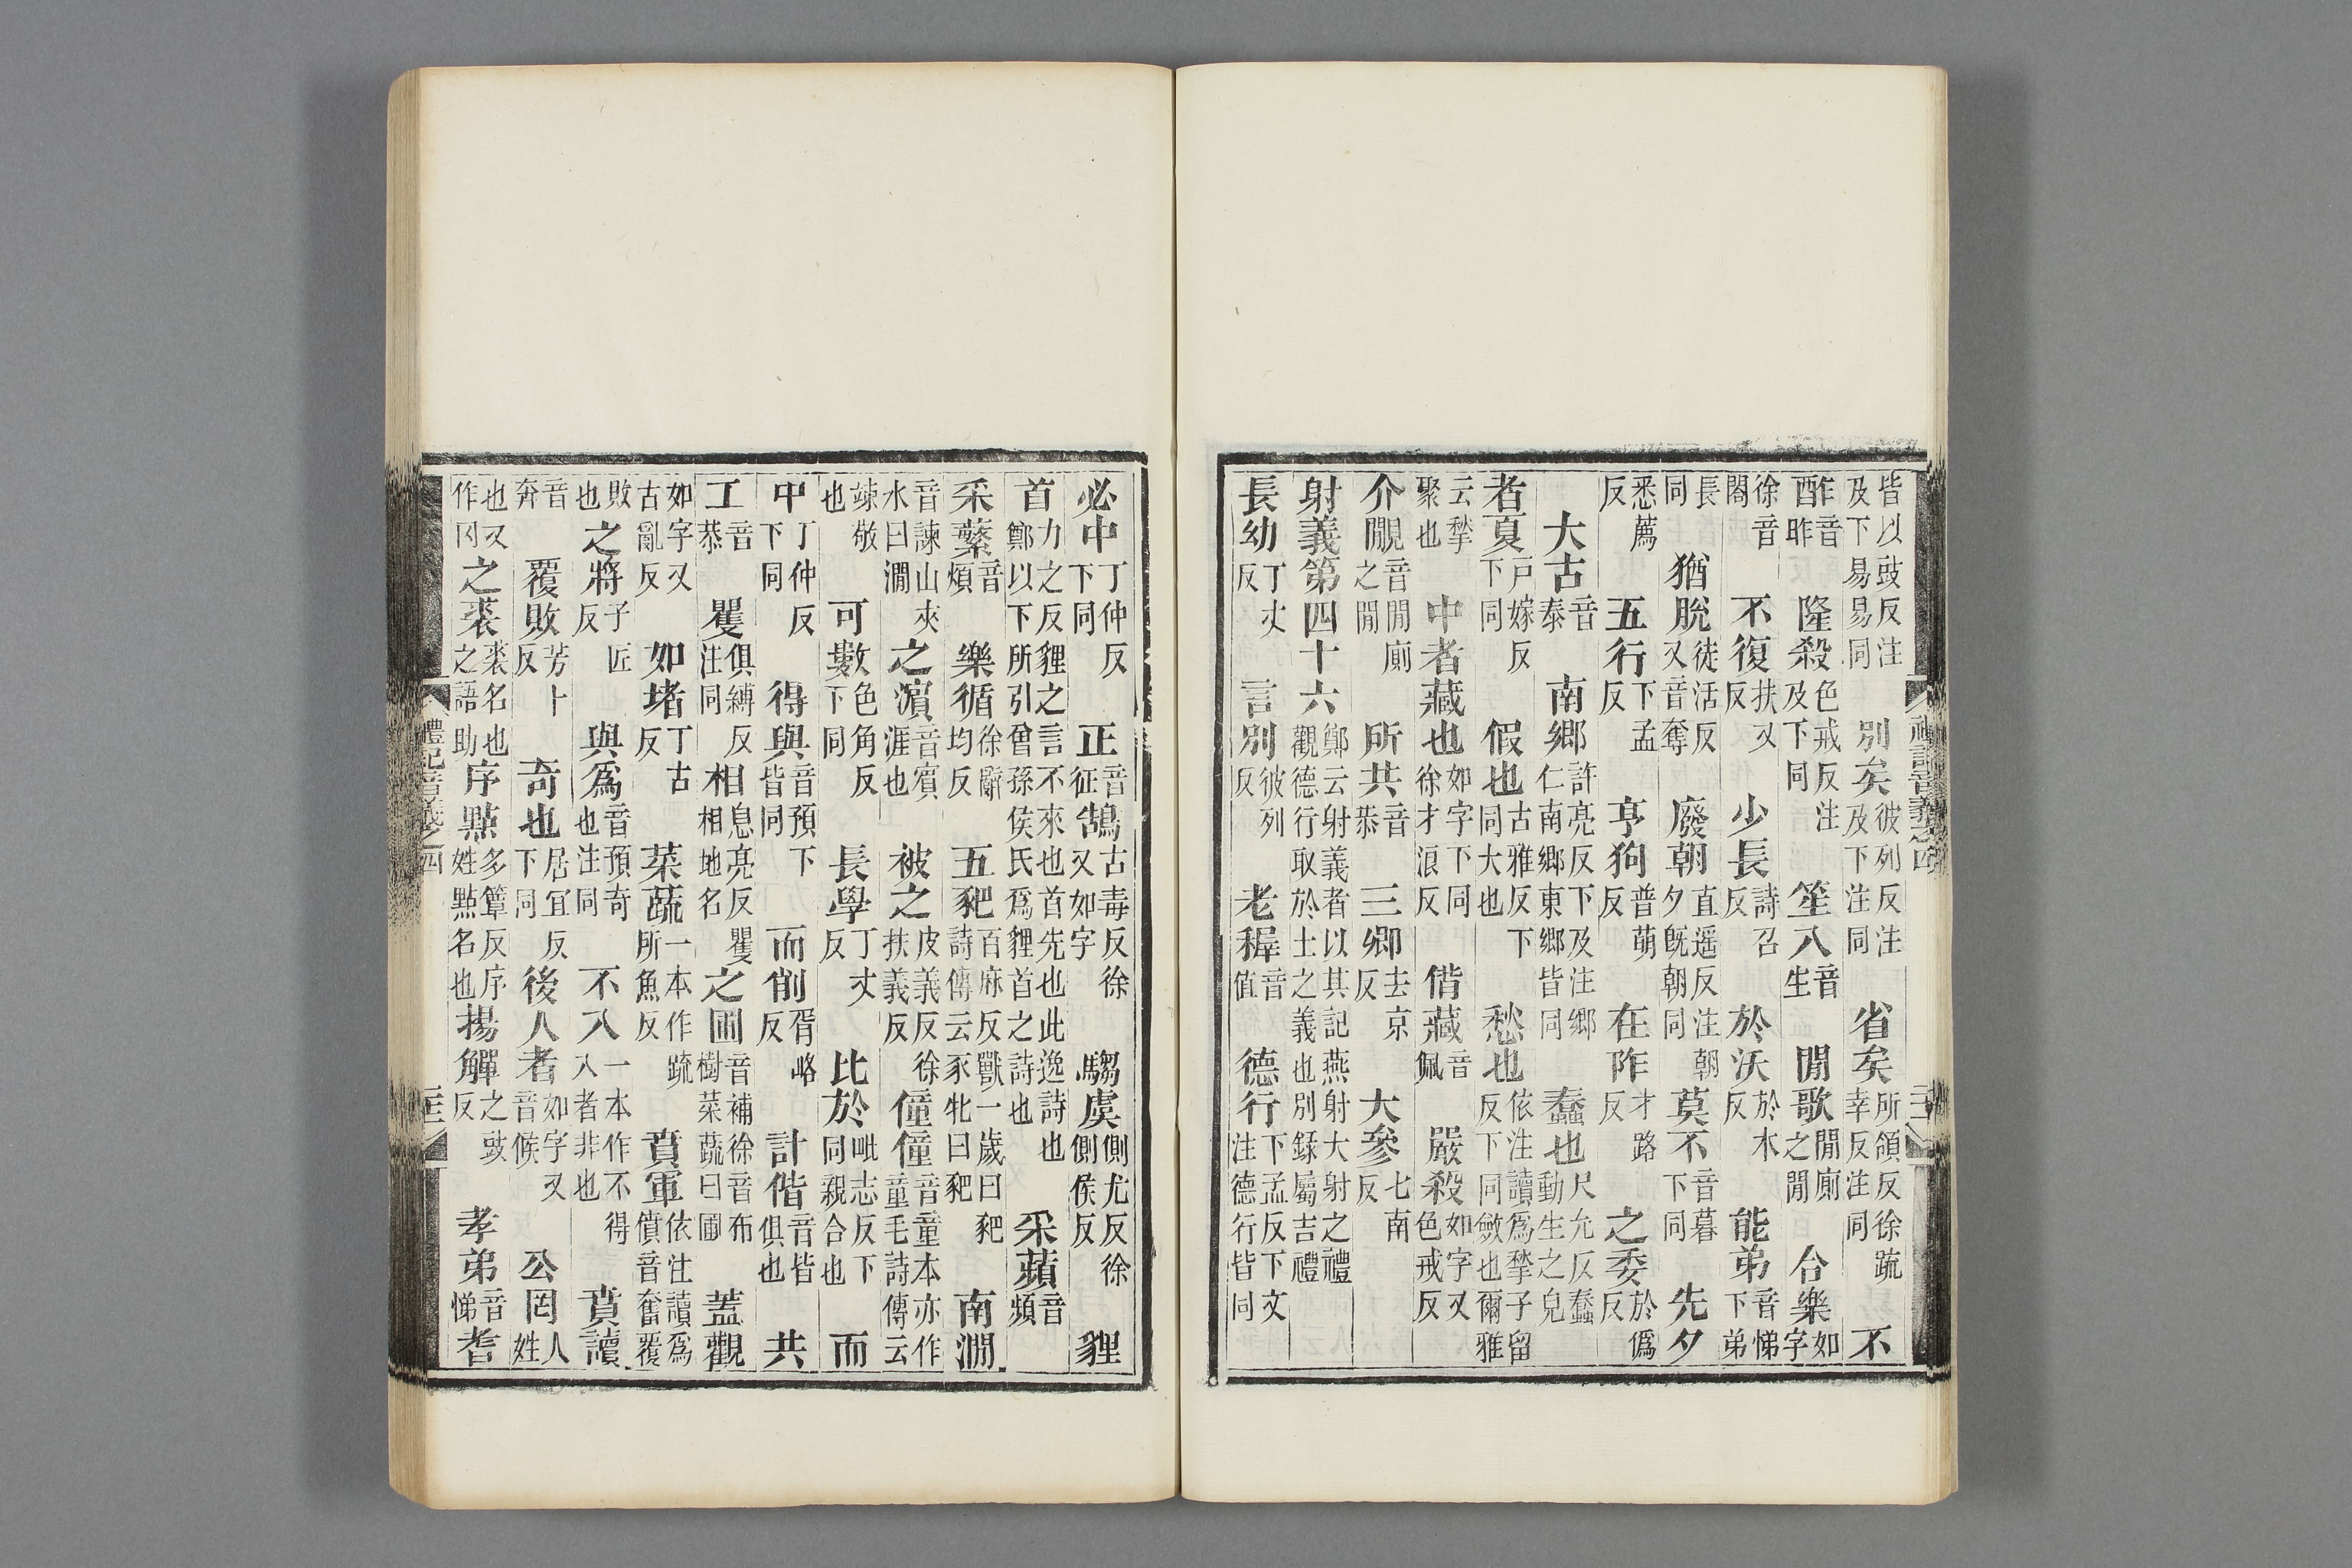 皆以豉反注及下易易同　別矣彼列反注及下注同　省矣所領反徐疏幸反注同　不
酢音昨　隆殺色戒反注及下同　笙入音生　閒歌閒廁之閒　合樂如字
徐音閤　不復扶又反　少長詩召反　於沃於木反　能弟音悌下弟
長同　猶脫徒活反又音奪　廢朝直遥反注朝夕旣朝同　莫不音暮下同　先夕
悉薦反　五行下孟反　亨狗普萌反　在阼才路反　之委於僞反
大古音泰　南鄉許亮反下及注鄉仁南鄉東鄉皆同　蠢也尺允反蠢動生之皃
者夏戸嫁反下同　假也古雅反下同大也　愁也依注讀爲揫子留反下同斂也爾雅
云揫聚也　中者藏也如字下同徐才浪反　偝藏音佩　嚴殺如字又色戒反
介覸音閒廁之閒　所共音恭　三卿去京反　大參七南反
射義第四十六鄭云射義者以其記燕射大射之禮觀德行取於士之義也別錄屬吉禮
長幼丁丈反　言別彼列反　老稺音值　德行下孟反下文注德行皆同
必中丁仲反下同　正音征　鵠古毒反徐又如字　騶虞側尤反徐側侯反　貍
首力之反貍之言不來也首先也此逸詩也鄭以下所引曾孫侯氏爲貍首之詩也　采蘋音頻
采蘩音煩　樂循徐辭均反　五豝百麻反獸一歲曰豝詩傳云豕牝曰豝　南澗
音諫山夾水曰澗　之濵音賓涯也　被之皮義反徐扶義反　僮僮音童本亦作童毛詩傳云
竦敬也　可數色角反下同　長學丁丈反　比於毗志反下同親合也　而
中丁仲反下同　得與音預下皆同　而削胥略反　計偕音皆俱也　共
工音恭　瞿俱縛反注同　相息亮反瞿相地名　之圃音補徐音布樹菜蔬曰圃　蓋觀
如字又古亂反　如堵丁古反　菜蔬一本作疏所魚反　賁軍依注讀爲僨音奮覆
敗也　之將子匠反　與爲音預奇也注同　不入一本作不得入者非也　賁讀
音奔　覆敗芳卜反　奇也居宜反下同　後人者如字又音候　公罔人姓
也又作冈　之裘裘名也之語助　序點多簟反序姓點名也　揚觶之豉反　孝弟音悌　耆
禮記音義之四